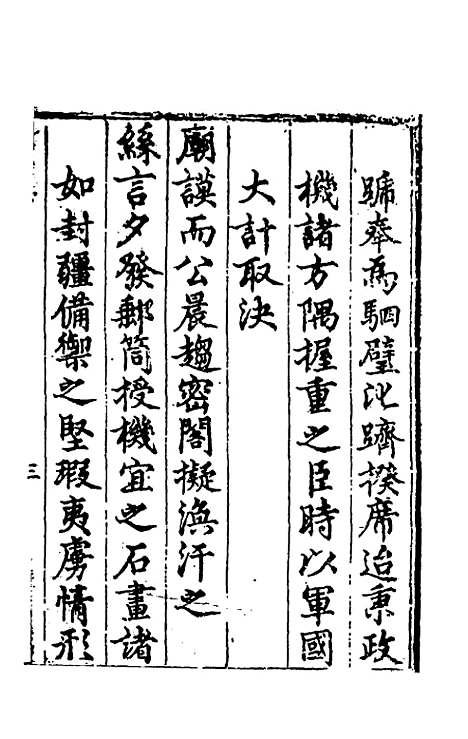 號奉為駟璧比躋揆席迨秉政
機諸方隅握重之臣時以軍國
大計取決
廟謨而公晨趨密閣擬渙汗之
絲言夕發郵筒授機宜之石畫諸
如封疆備禦之堅瑕夷虜情形
三